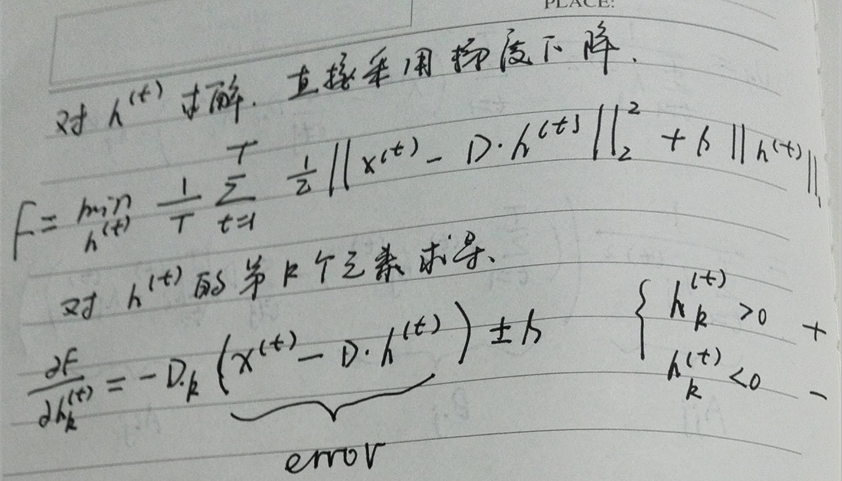 PLACE:
对 h^(t) 求解. 直接采用梯度下降.
F = min_{h^(t)} 1/T Σ_{t=1}^{T} 1/2 ||x^(t) - D·h^(t)||_2^2 + λ ||h^(t)||_1
对 h^(t) 的第 k 个元素求导、
∂F/∂h_k^(t) = -D._k (x^(t) - D·h^(t)) ± λ { h_k^(t) >0 + h_k^(t) <0 -
error